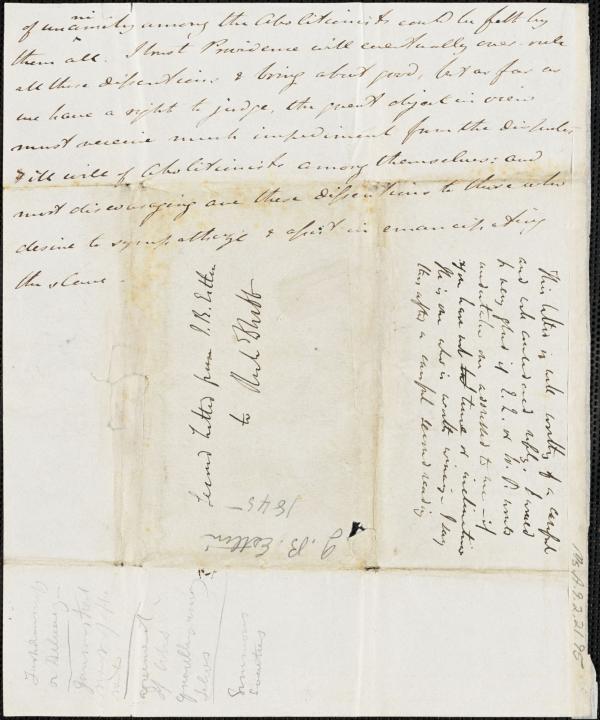 of unanimity among the Abolitionists could be felt by
them all. I trust Providence will eventually over-rule
all these dissentions & bring about good, but as far as
we have a right to judge, the great object in view
must receive much impediment from the disputes
& ill will of Abolitionists among themselves; and
most discouraging are these dissentions to those who
desire to sympathize & assist in emancipating
the slave.
Second letter from J. B. Estlin
to
J. B. Estlin
1845-
This letter is well worthy of a careful
and well considered reply. I would
be very glad if E. Q. or W. P. would
undertake one assented to me - if
you have not time or inclination
He is one who is worth winning. I say
this after a careful second reading
quarrelling among
Ms. A. 9. 2. 21 95